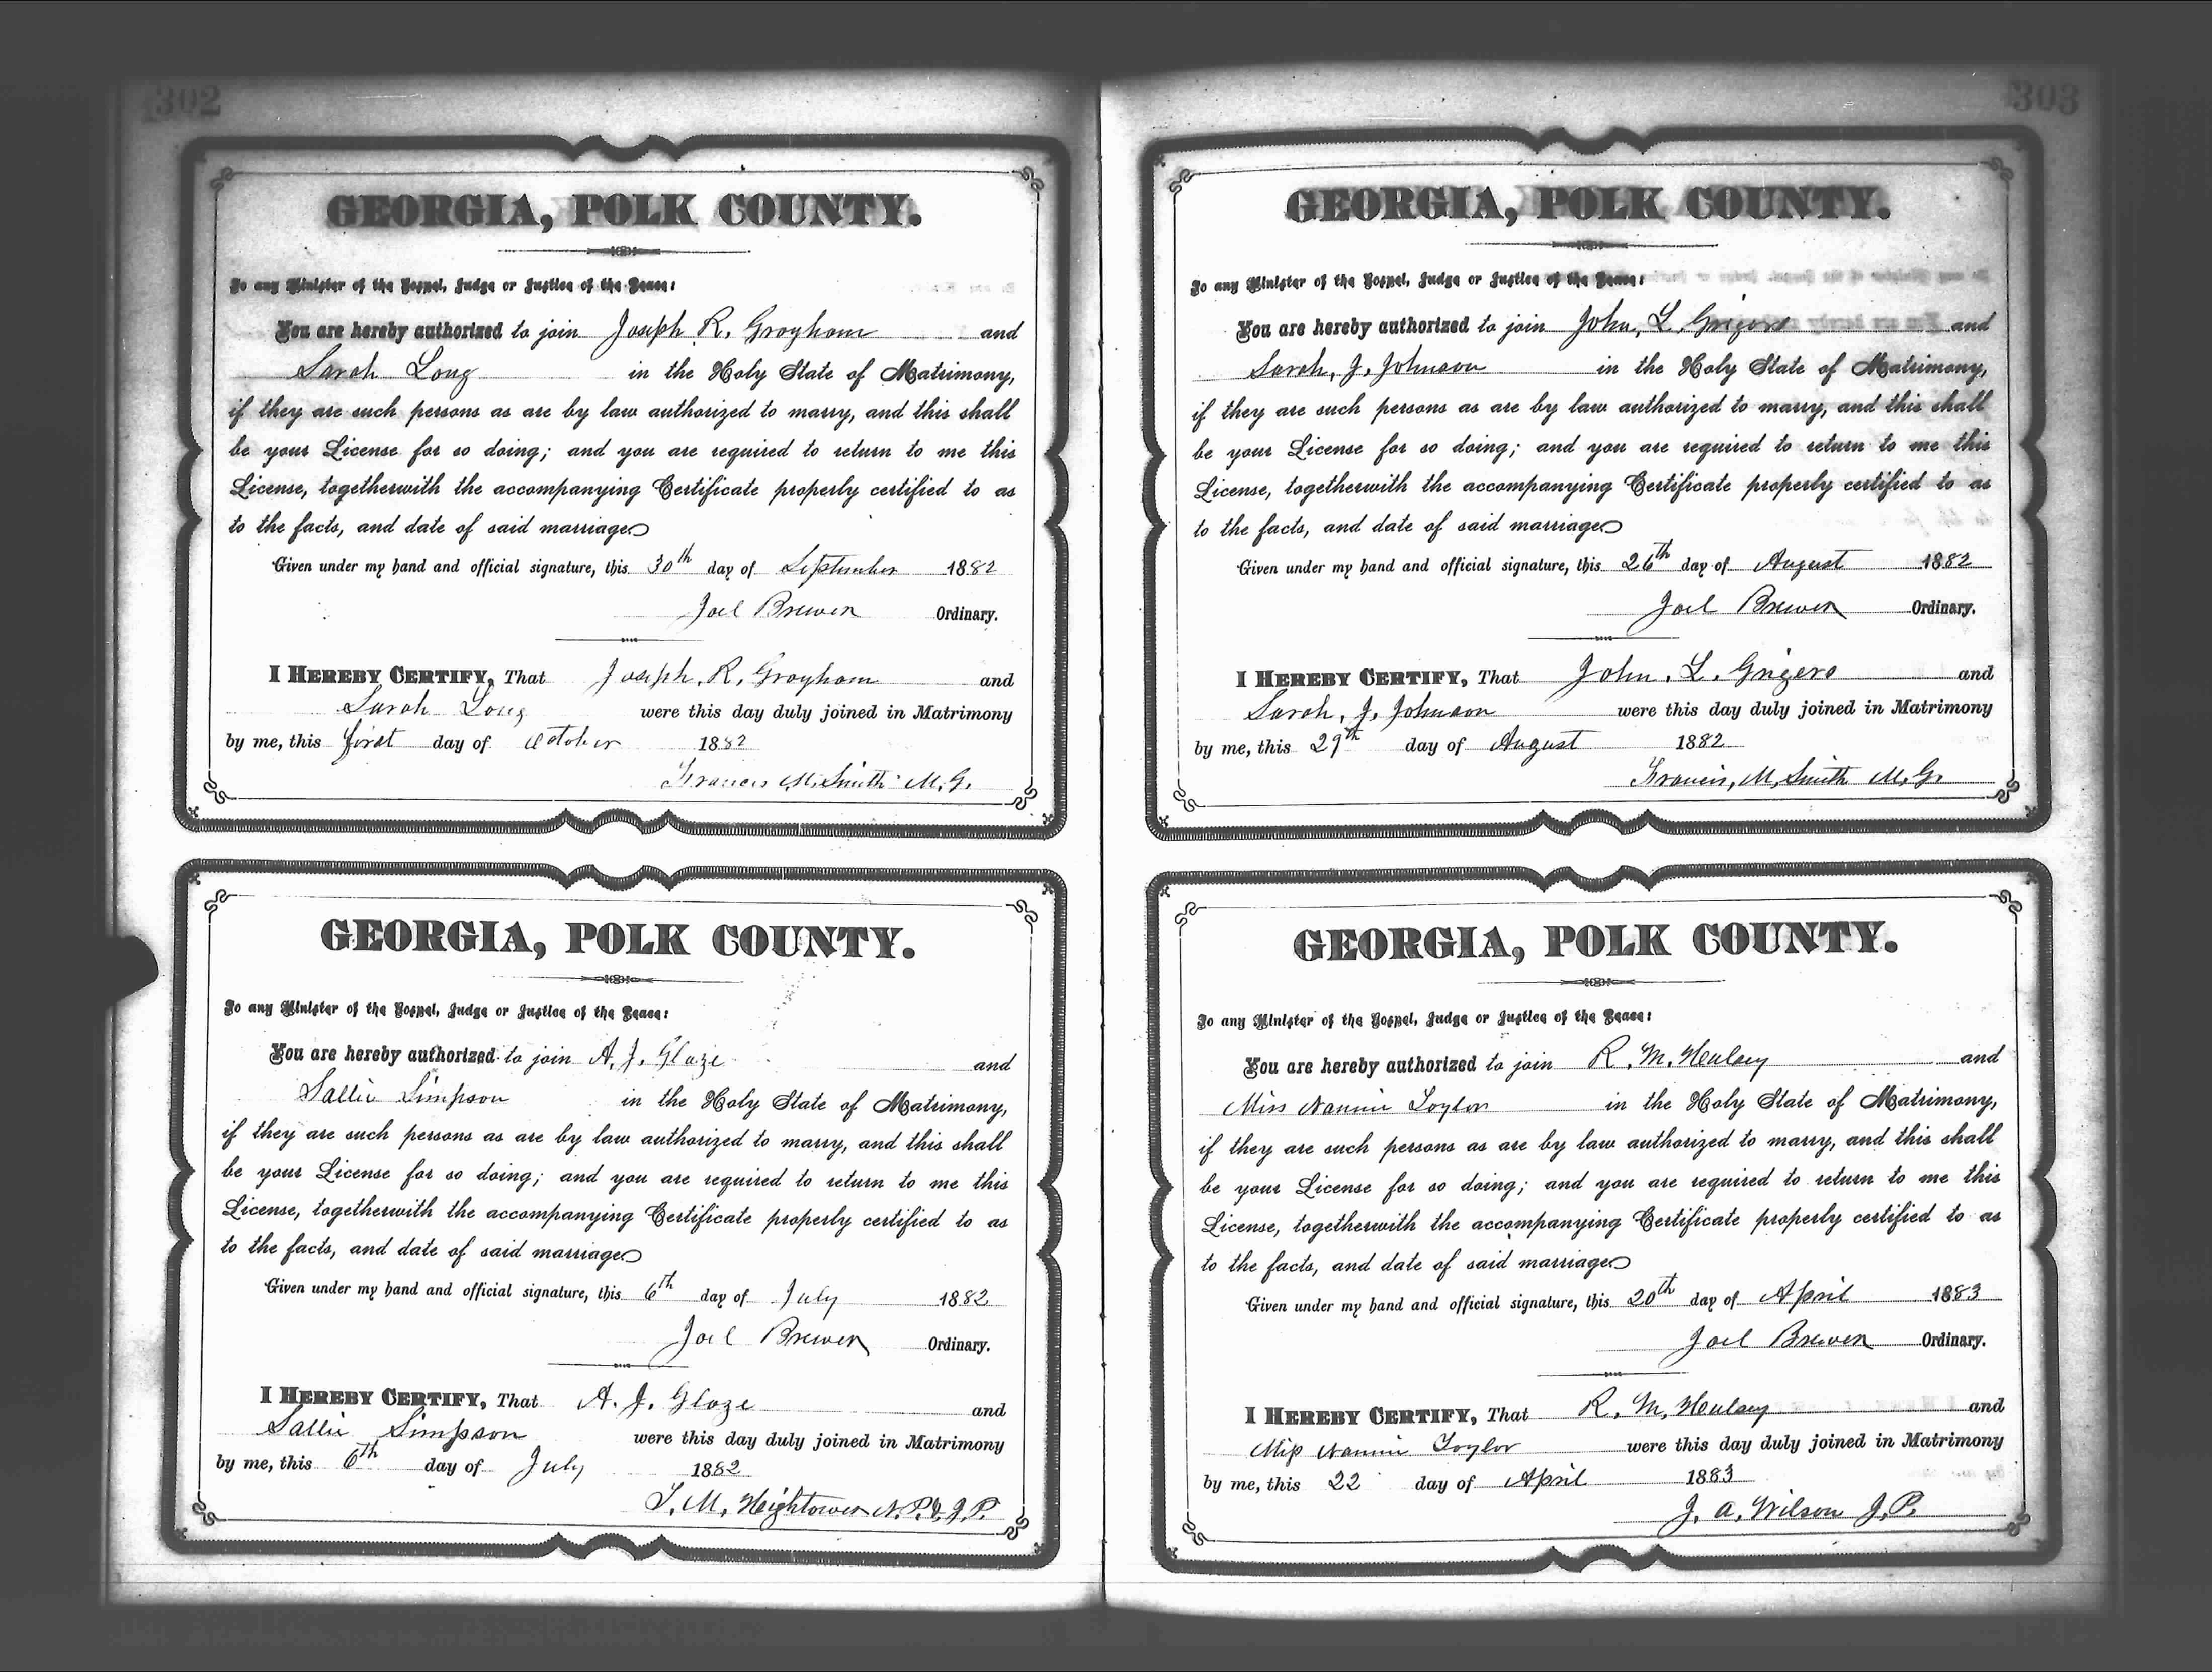 302
GEORGIA, POLK COUNTY.
To any Minister of the Gospel, Judge or Justice of the Peace:
You are hereby authorized to join Joseph R. Grayham and
Sarah Long in the Holy State of Matrimony,
if they are such persons as are by law authorized to marry, and this shall
be your License for so doing; and you are required to return to me this
License, togetherwith the accompanying Certificate properly certified to as
to the facts, and date of said marriage
Given under my hand and official signature, this 30th day of September 1882
Joel Brewer Ordinary.
I HEREBY CERTIFY, That Joseph. R. Grayham and
Sarah Long were this day duly joined in Matrimony
by me, this first day of October 1882
Francis M. Smith M. G.
GEORGIA, POLK COUNTY.
To any Minister of the Gospel, Judge or Justice of the Peace:
You are hereby authorized to join A. J. Glaze and
Sallie Simpson in the Holy State of Matrimony,
if they are such persons as are by law authorized to marry, and this shall
be your License for so doing; and you are required to return to me this
License, togetherwith the accompanying Certificate properly certified to as
to the facts, and date of said marriage
Given under my hand and official signature, this 6th day of July 1882
Joel Brewer Ordinary.
I HEREBY CERTIFY, That A. J. Glaze and
Sallie Simpson were this day duly joined in Matrimony
by me, this 6th day of July 1882
T. M. Hightower N. P. & J. P.
303
GEORGIA, POLK COUNTY.
To any Minister of the Gospel, Judge or Justice of the Peace:
You are hereby authorized to join John, L. Grigers and
Sarah, J. Johnson in the Holy State of Matrimony,
if they are such persons as are by law authorized to marry, and this shall
be your License for so doing; and you are required to return to me this
License, togetherwith the accompanying Certificate properly certified to as
to the facts, and date of said marriage
Given under my hand and official signature, this 26th day of August 1882
Joel Brewer Ordinary.
I HEREBY CERTIFY, That John. L. Grigers and
Sarah, J. Johnson were this day duly joined in Matrimony
by me, this 29th day of August 1882
Francis, M, Smith M. G.
GEORGIA, POLK COUNTY.
To any Minister of the Gospel, Judge or Justice of the Peace:
You are hereby authorized to join R. M. Heulsey and
Miss Nannie Taylor in the Holy State of Matrimony,
if they are such persons as are by law authorized to marry, and this shall
be your License for so doing; and you are required to return to me this
License, togetherwith the accompanying Certificate properly certified to as
to the facts, and date of said marriage
Given under my hand and official signature, this 20th day of April 1883
Joel Brewer Ordinary.
I HEREBY CERTIFY, That R. M. Heulsey and
Miss Nannie Taylor were this day duly joined in Matrimony
by me, this 22 day of April 1883
J. A. Wilson J. P.